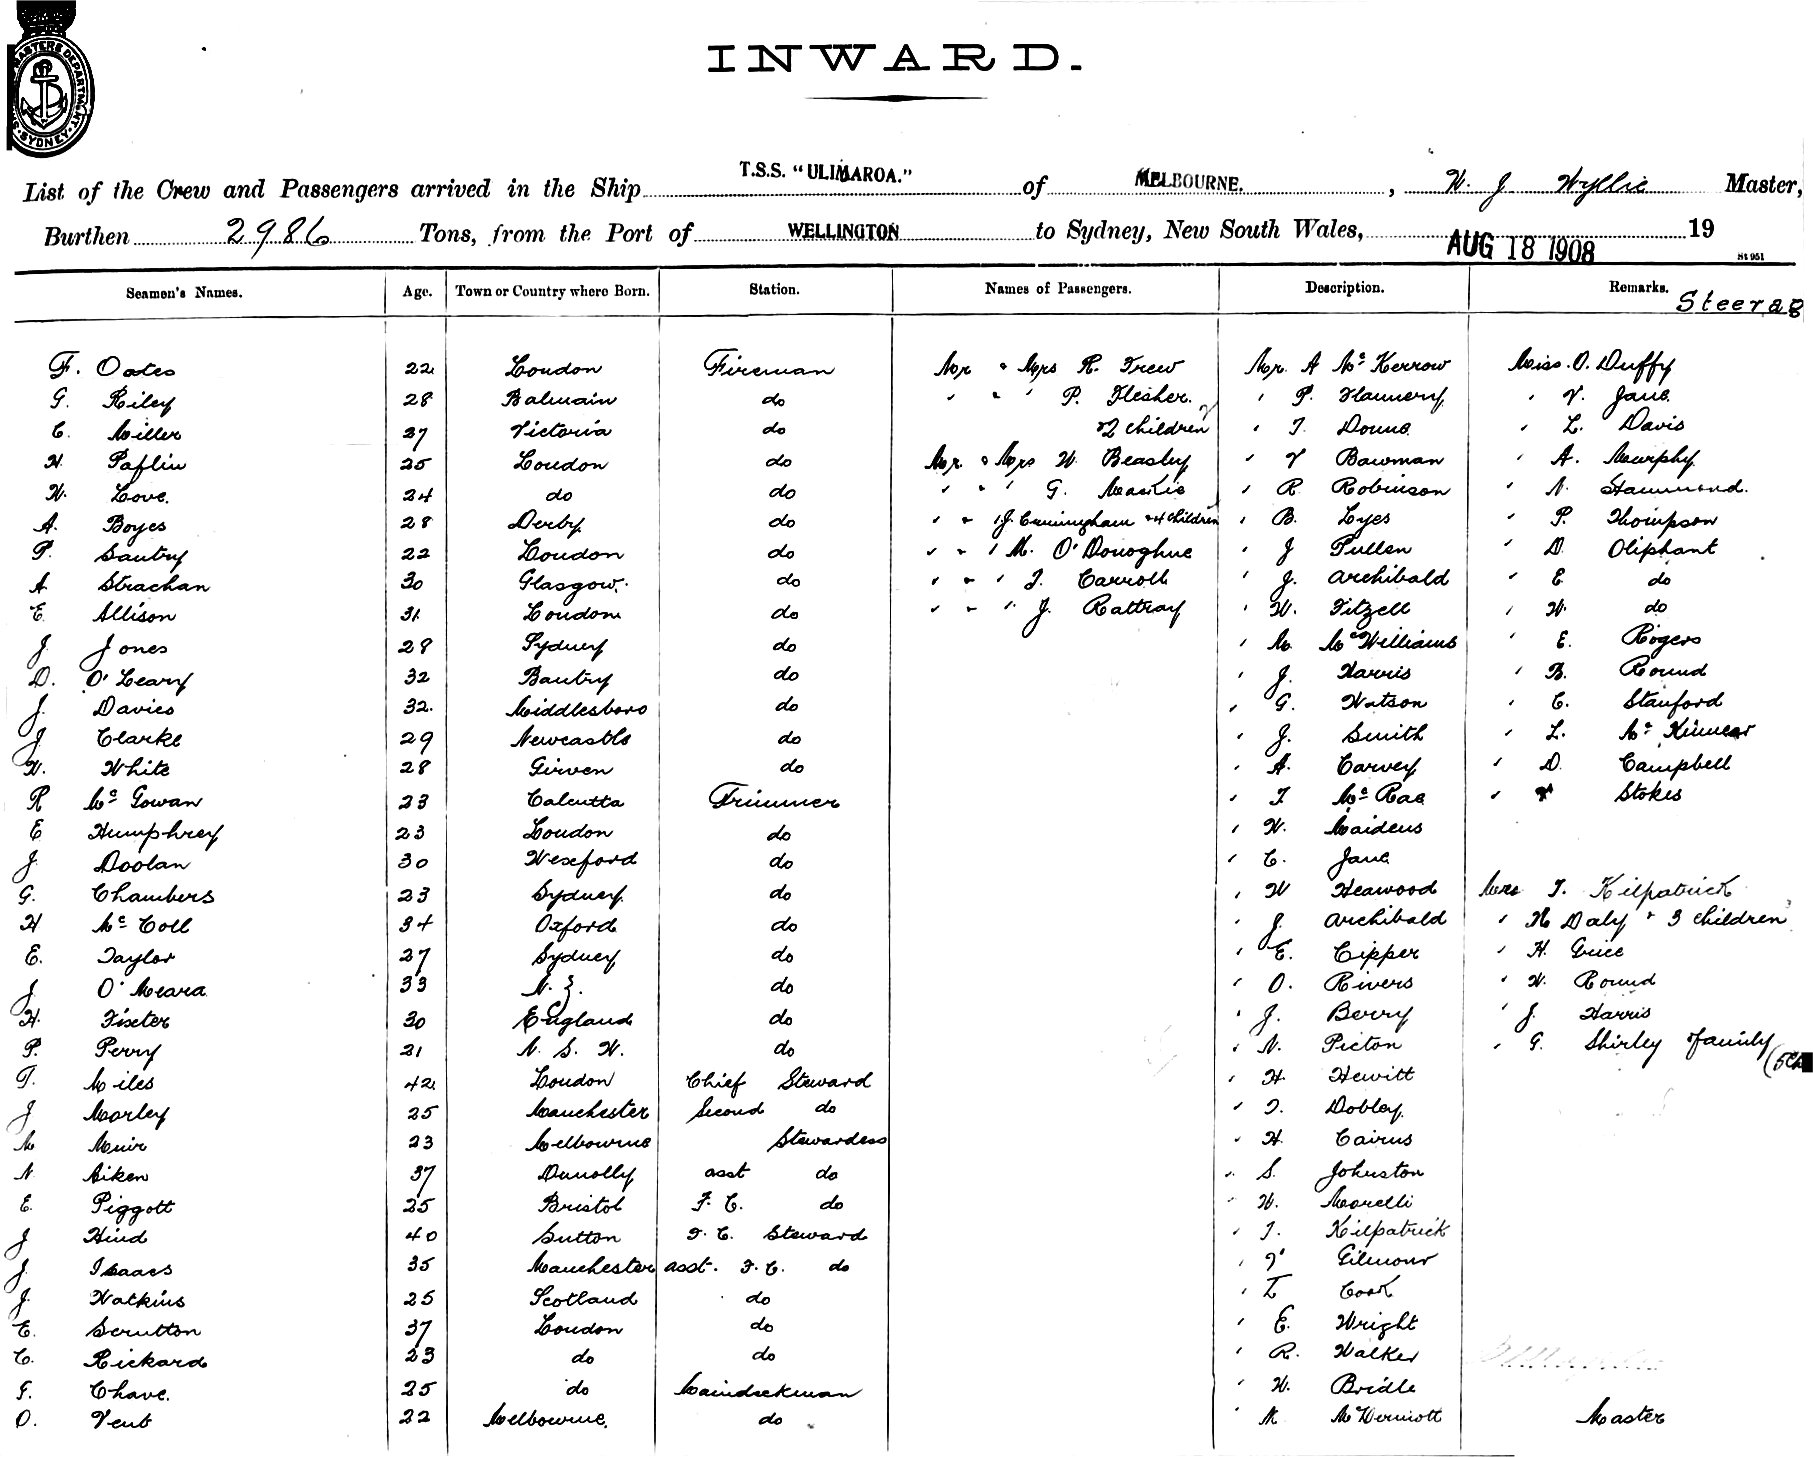 MASTERS DEPARTMENT SYDNEY
INWARD.
List of the Crew and Passengers arrived in the Ship T.S.S. "ULIMAROA." of MELBOURNE, W. J Wyllie Master,
Burthen 2986 Tons, from the Port of WELLINGTON to Sydney, New South Wales, AUG 18 1908 19
St 951
Seamen's Names. Age. Town or Country where Born. Station. Names of Passengers. Description. Remarks. Steerag
F. Oates 22 London Fireman Mr & Mrs R. Trew Mr. A Mc Kerrow Miss. O. Duffy
G. Riley 28 Balmain do " " " P. Flesher. " P. Flannery " V. Jane
C. Miller 37 Victoria do & 2 children " T. Doune " L. Davis
H. Paflin 25 London do Mr. & Mrs W. Beasley " V Bowman " A. Murphy
W. Love. 24 do do " " " G. Mackie " R. Robinson " N. Hammond.
A. Boyes 28 Derby do " " " J. Cunningham & 4 children " B. Lyes " P. Thompson
P. Santry 22 London do " " " M. O'Donoghue " J Pullen " D. Oliphant
A Strachan 30 Glasgow. do " " " T. Carroll " J. Archibald " E. do
E. Allison 31 London do " " " J. Rattray " W. Fitzell " W. do
J. Jones 28 Sydney do " M. McWilliams " E. Rogers
D. O'Leary 32 Bantry do " J. Harris " B. Round
J. Davies 32. Middlesboro do " G. Watson " C. Stanford
J Clarke 29 Newcastle do " J. Smith " L. Mc Kinnear
W. White 28 Girven do " A. Carvey " D. Campbell
R McGowan 23 Calcutta Trimmer " T Mc Rae " Stokes
E Humphrey 23 London do " W. Maidens
J. Doolan 30 Wexford do " C. Jane
G. Chambers 23 Sydney. do " W Heawood Mrs T. Kilpatrick
H McColl 34 Oxford do " J. Archibald " H Daly & 3 children
E. Taylor 27 Sydney do " E. Cipper " H. Grice
J O'Meara 33 N. Z. do " O. Rivers " W. Round
H. Fixter 30 England do " J. Berry " J. Harris
P. Perry 21 N. S. W. do " N. Picton " G. Shirley & family
T. Miles 42 London Chief Steward " H. Hewitt
J Morley 25 Manchester Second do " T. Dobley.
M Muir 23 Melbourne Stewardess " H. Cairns
N. Aiken 37 Dunolly asst do " S. Johnston
E. Piggott 25 Bristol F. C. do " W. Morelli
J Hind 40 Sutton F. C. Steward " T. Kilpatrick
J. Isaacs 35 Manchester asst. F. C. do " Gilmour
J. Watkins 25 Scotland do " Cook
E. Scrutton 37 London do " E. Wright
C. Rickard 23 do do " R. Walker
F. Chave. 25 do Maindeckman " W. Bridle
O. Vent 22 Melbourne. do " M McDermott Master